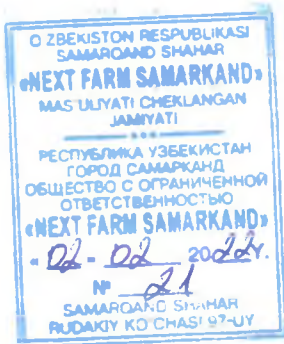 O ZBEKISTON RESPUBLIKASI
SAMARQAND SHAHAR
«NEXT FARM SAMARKAND»
MAS ULIYATI CHEKLANGAN
JAMIYATI
РЕСПУБЛИКА УЗБЕКИСТАН
ГОРОД САМАРКАНД
ОБЩЕСТВО С ОГРАНИЧЕННОЙ
ОТВЕТСТВЕННОСТЬЮ
«NEXT FARM SAMARKAND»
« 02 - 02 2022г.
№ 21
SAMARQAND SHAHAR
RUDAKIY KO CHASI 97-UY